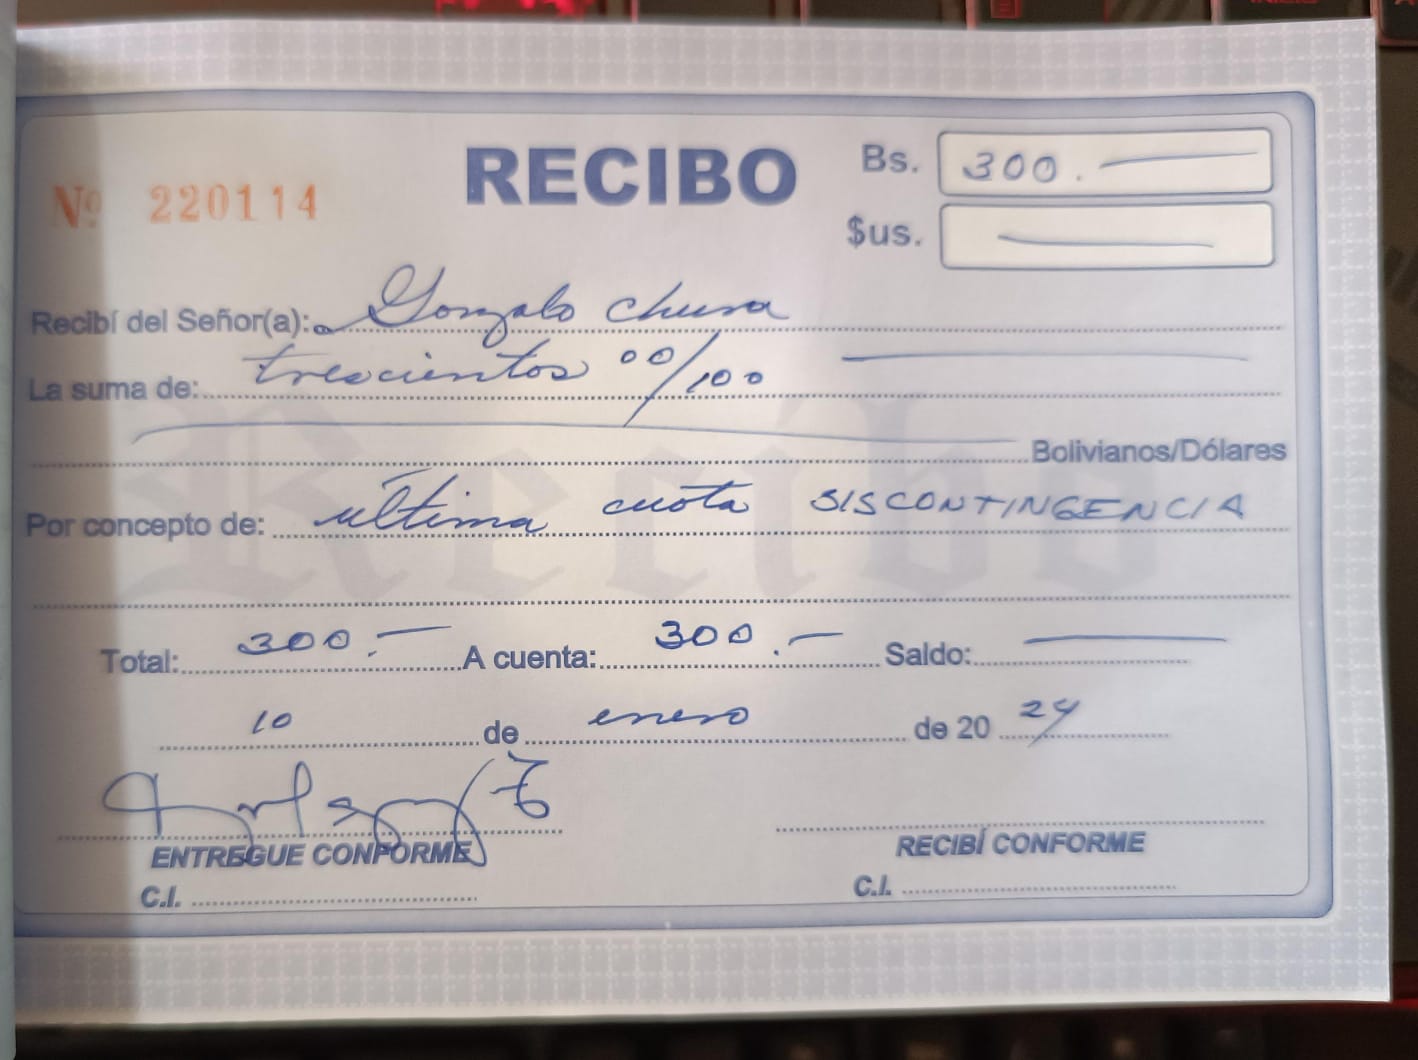 RECIBO
Nº 220114
Bs. 300.—
$us. —
Recibí del Señor(a): Gonzalo Chura
La suma de: trescientos 00/100 —
— Bolivianos/Dólares
Por concepto de: última cuota SISCONTINGENCIA
Recibo
Total: 300.— A cuenta: 300.— Saldo: —
10 de enero de 2024
ENTREGUE CONFORME RECIBÍ CONFORME
C.I. C.I.